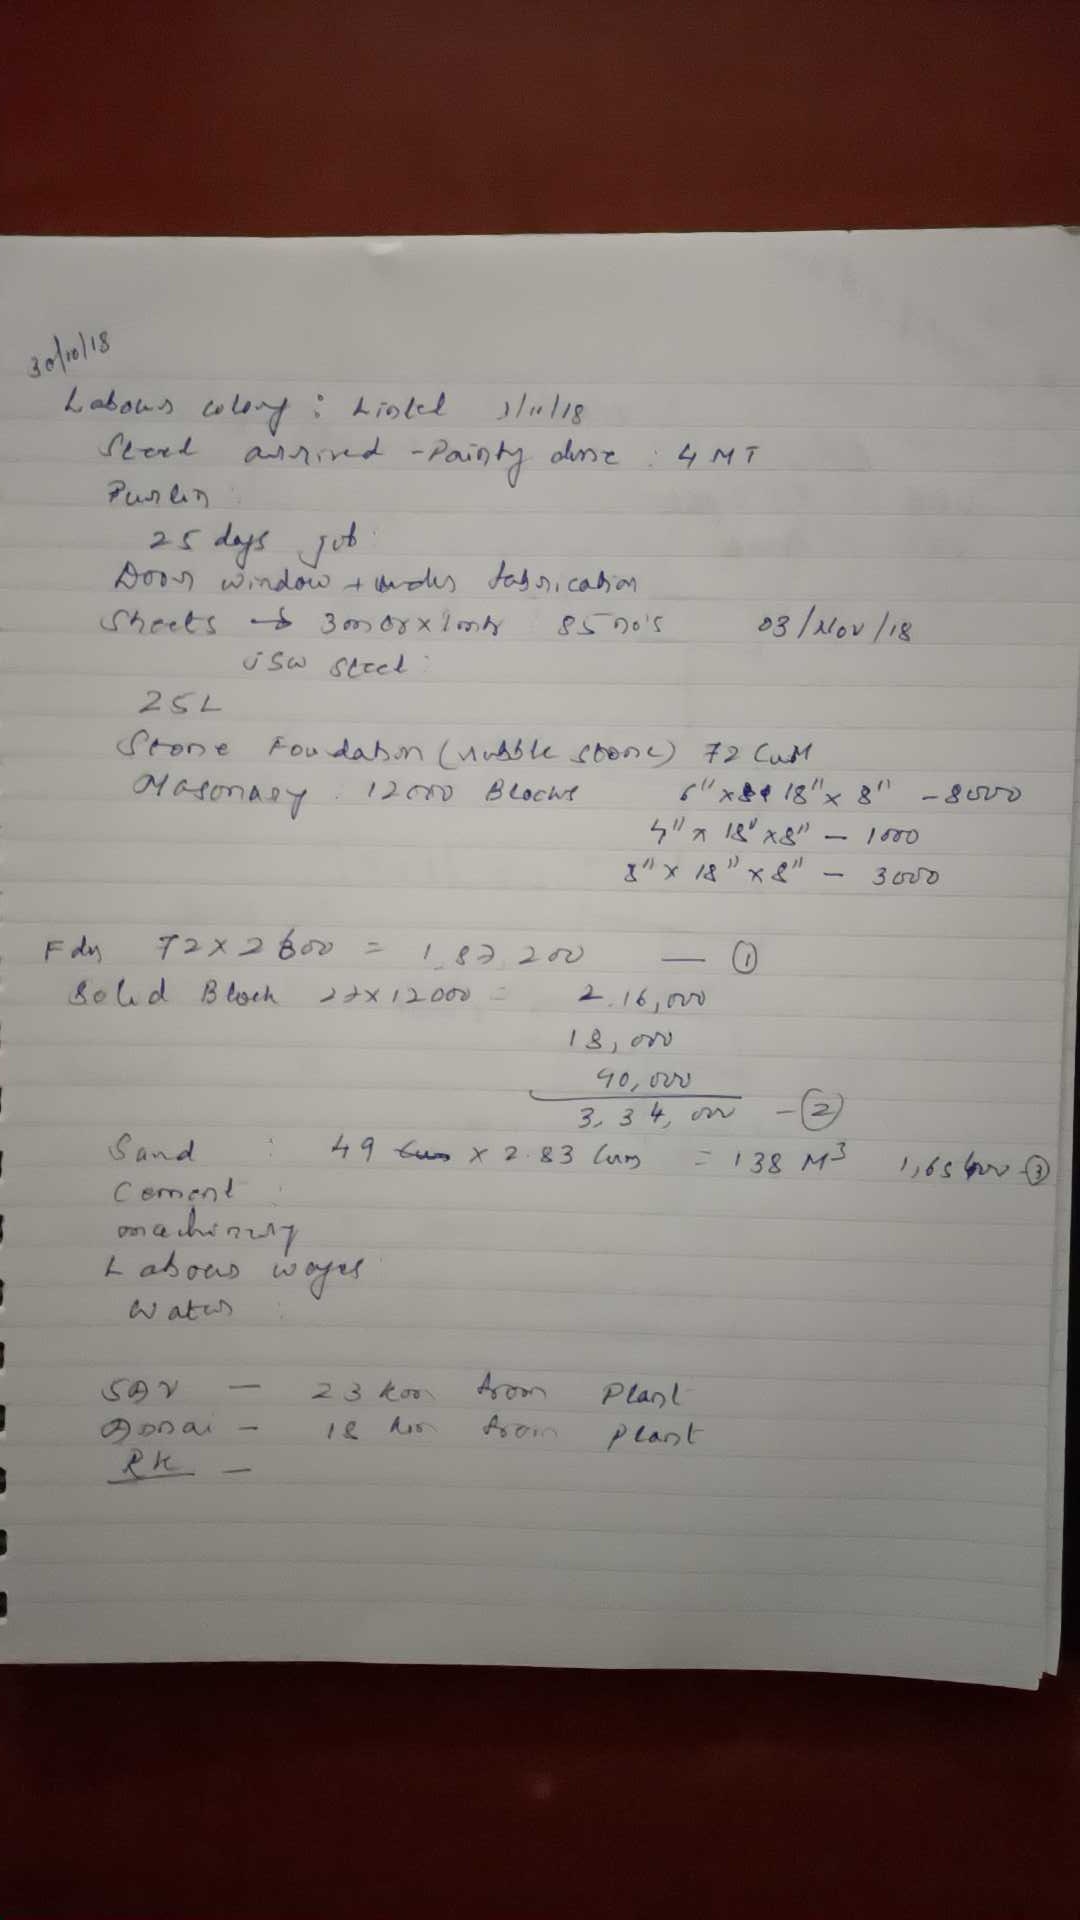 30/10/18
Labour colony : Lintel 1/11/18
Steel arrived - Painty done : 4 MT
Purlin :
25 days job
Door window + fabrication
Sheets → 3mtr x 1mtr 85 no's 03/Nov/18
JSW Steel :
25L
Stone Foundation (rubble stone) 72 CuM
Masonary : 12000 Blocks 6" x 18" x 8" - 8000
4" x 18" x 8" - 1000
8" x 18" x 8" - 3000
Fdn 72 x 2600 = 1,87,200 — ①
Solid Block 27x12000 = 2,16,000
18,000
90,000
3,34,000 - ②
Sand : 49 x 2.83 Cum = 138 M³ ③
Cement :
machinery
Labour wages
Water :
— 23 km from Plant
— 18 km from plant
RK —